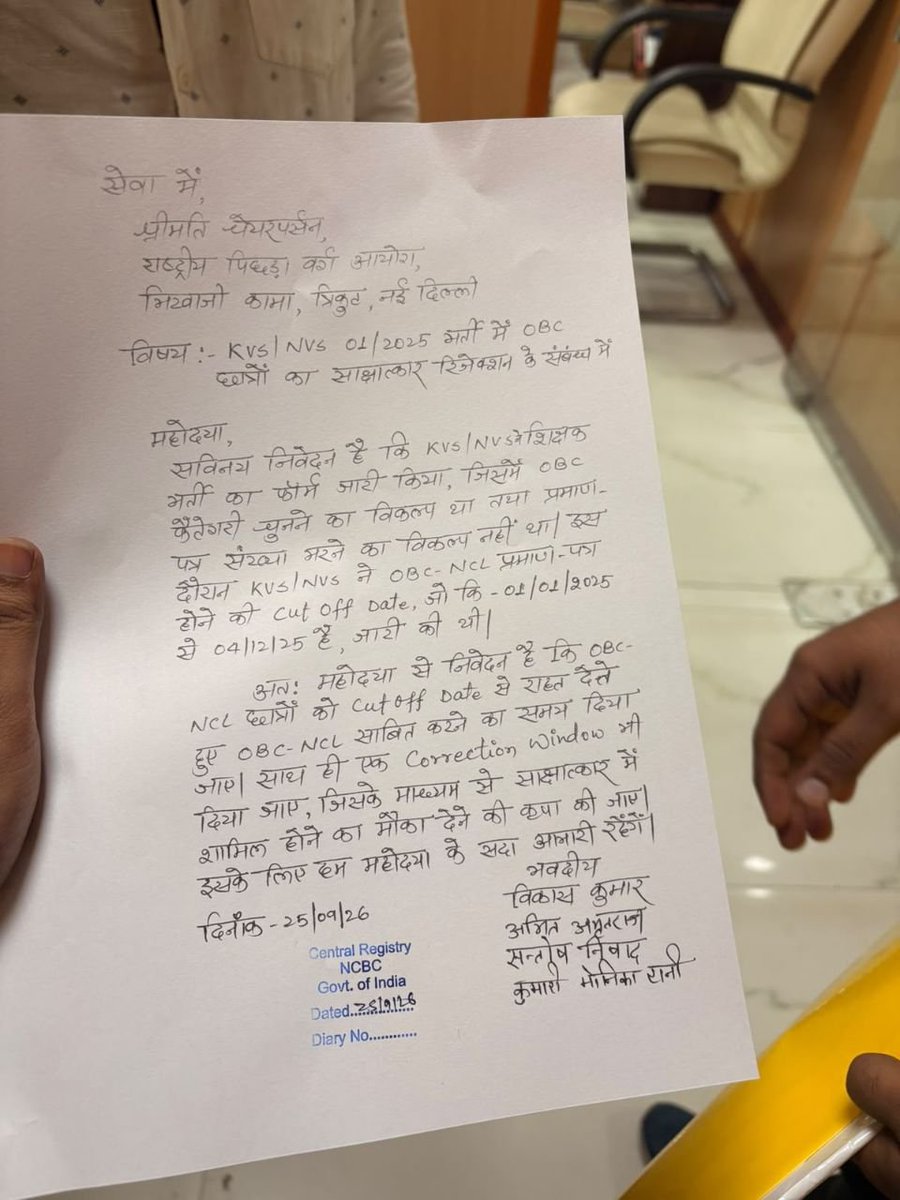 सेवा में,
श्रीमति चेयरपर्सन,
राष्ट्रीय पिछड़ा वर्ग आयोग,
भिखाजी कामा, त्रिकुट, नई दिल्ली
विषय :- KVS/NVS 01/2025 भर्ती में OBC
छात्रों का साक्षात्कार रिजेक्शन के संबंध में
महोदया,
सविनय निवेदन है कि KVS/NVS ने शिक्षक
भर्ती का फॉर्म जारी किया, जिसमें OBC
कैटेगरी चुनने का विकल्प था तथा प्रमाण-
पत्र संख्या भरने का विकल्प नहीं था। इस
दौरान KVS/NVS ने OBC-NCL प्रमाण-पत्र
होने की Cut Off Date, जो कि - 01/01/2025
से 04/12/25 है, जारी की थी।
अतः महोदया से निवेदन है कि OBC-
NCL छात्रों को Cut Off Date से राहत देते
हुए OBC-NCL साबित करने का समय दिया
जाए। साथ ही एक Correction Window भी
दिया जाए, जिसके माध्यम से साक्षात्कार में
शामिल होने का मौका देने की कृपा की जाए।
इसके लिए हम महोदया के सदा आभारी रहेंगें।
भवदीय
विकास कुमार
अमित अमृतराज
सन्तोष निषाद
कुमारी मोनिका रानी
दिनाँक - 25/09/26
Central Registry
NCBC
Govt. of India
Dated..25/9/26
Diary No............